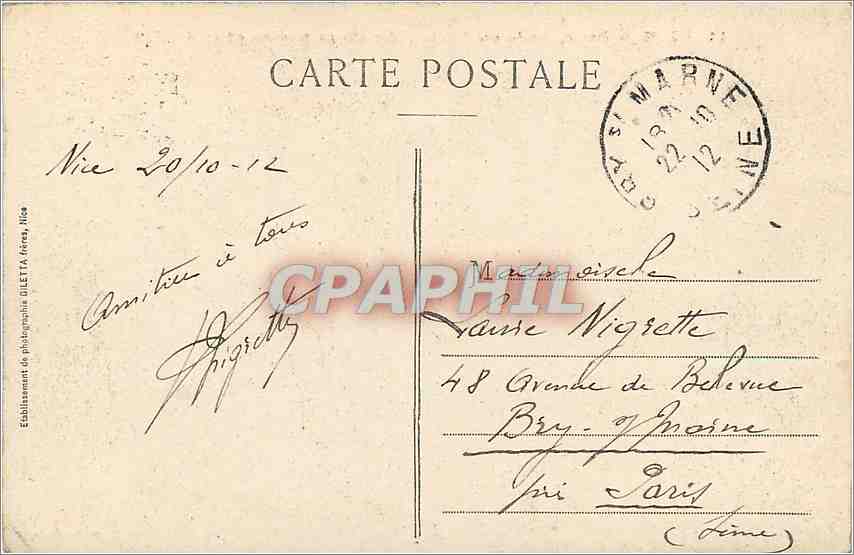 CARTE POSTALE
BRY S/ MARNE
18
22 10
12
SEINE
Nice 20/10-12
Amitiés à tous
Nigrette
Etablissement de photographie GILETTA frères, Nice
CPAPHIL
Mademoiselle
Laure Nigrette
48 Avenue de Bellevue
Bry-s/Marne
près Paris
(Seine)